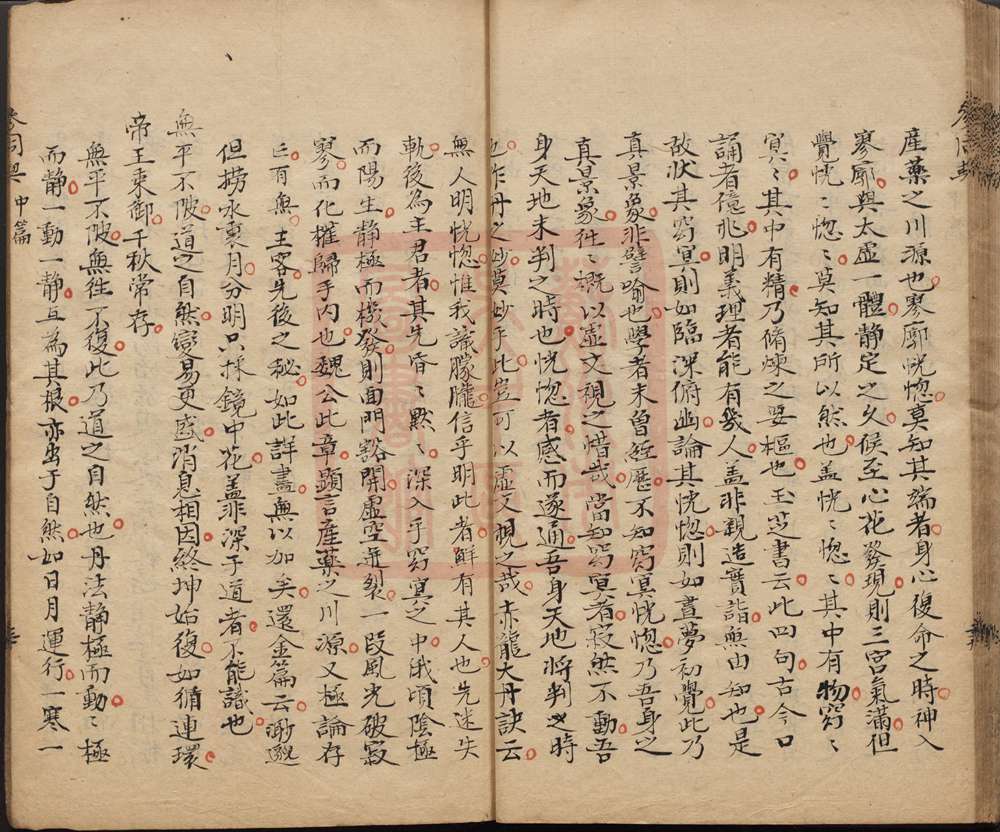 產藥之川源也寥廓恍惚莫知其端者身心復命之時神入
寥廓與太虛一體靜定之久候至心花發現則三宮氣滿但
覺恍〻惚〻莫知其所以然也盖恍〻惚〻其中有物窈〻
冥〻其中有精乃脩煉之要樞也玉芝書云此四句古今口
誦者億兆明義理者能有幾人盖非親造實詣無由知也是
故狀其窈冥則如臨深俯幽論其恍惚則如晝夢初覺此乃
真景象非譬喻也學者未曾經歷不知窈冥恍惚乃吾身之
真景象徃〻概以虛文視之惜哉當知窈冥者寂然不動吾
身天地未判之時也恍惚者感而遂通吾身天地將判之時
也作丹之妙莫妙乎此豈可以虛文視之哉赤龍大丹訣云
無人明恍惚惟我識朦朧信乎明此者鮮有其人也先迷失
軌後為主君者其先昏〻默〻深入乎窈冥之中俄頃陰極
而陽生靜極而機發則面門豁開虛空迸裂一段風光破寂
寥而化摧歸乎內也魏公此章顯言產藥之川源又極論存
亡有無主客先後之秘如此詳盡無以加矣還金篇云渺邈
但撈水裏月分明只採鏡中花盖非深于道者不能識也
無平不陂道之自然變易更盛消息相因終坤始復如循連環
帝王乘御千秋常存
無平不陂無徃不復此乃道之自然也丹法靜極而動〻極
而靜一動一靜互為其根亦出于自然如日月運行一寒一
參同契 中篇